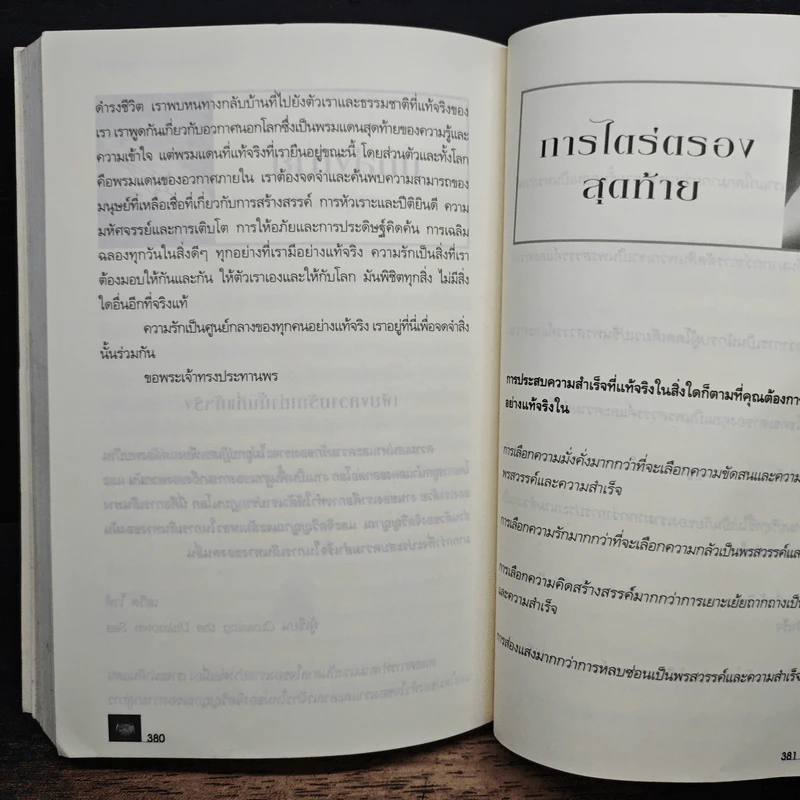 ดำรงชีวิต เราพบหนทางกลับบ้านที่ไปยังตัวเราและธรรมชาติที่แท้จริงของ
เรา เราพูดกันเกี่ยวกับอวกาศนอกโลกซึ่งเป็นพรมแดนสุดท้ายของความรู้และ
ความเข้าใจ แต่พรมแดนที่แท้จริงที่เรายืนอยู่ขณะนี้ โดยส่วนตัวและทั้งโลก
คือพรมแดนของอวกาศภายใน เราต้องจดจำและค้นพบความสามารถของ
มนุษย์ที่เหลือเชื่อที่เกี่ยวกับการสร้างสรรค์ การหัวเราะและปิติยินดี ความ
มหัศจรรย์และการเติบโต การให้อภัยและการประดิษฐ์คิดค้น การเฉลิม
ฉลองทุกวันในสิ่งดีๆ ทุกอย่างที่เรามีอย่างแท้จริง ความรักเป็นสิ่งที่เรา
ต้องมอบให้กันและกัน ให้ตัวเราเองและให้กับโลก มันพิชิตทุกสิ่ง ไม่มีสิ่ง
ใดอื่นอีกที่จริงแท้
ความรักเป็นศูนย์กลางของทุกคนอย่างแท้จริง เราอยู่ที่นี่เพื่อจดจำสิ่ง
นั้นร่วมกัน
ขอพระเจ้าทรงประทานพร
380
การไตร่ตรอง
สุดท้าย
การประสบความสำเร็จที่แท้จริงในสิ่งใดก็ตามที่คุณต้องการ
อย่างแท้จริงใน
การเลือกความมั่งคั่งมากกว่าที่จะเลือกความขัดสนและความ
พรสวรรค์และความสำเร็จ
การเลือกความรักมากกว่าที่จะเลือกความกลัวเป็นพรสวรรค์และ
การเลือกความคิดสร้างสรรค์มากกว่าการเยาะเย้ยถากถางเป็น
และความสำเร็จ
การส่องแสงมากกว่าการหลบซ่อนเป็นพรสวรรค์และความสำเร็จ
381